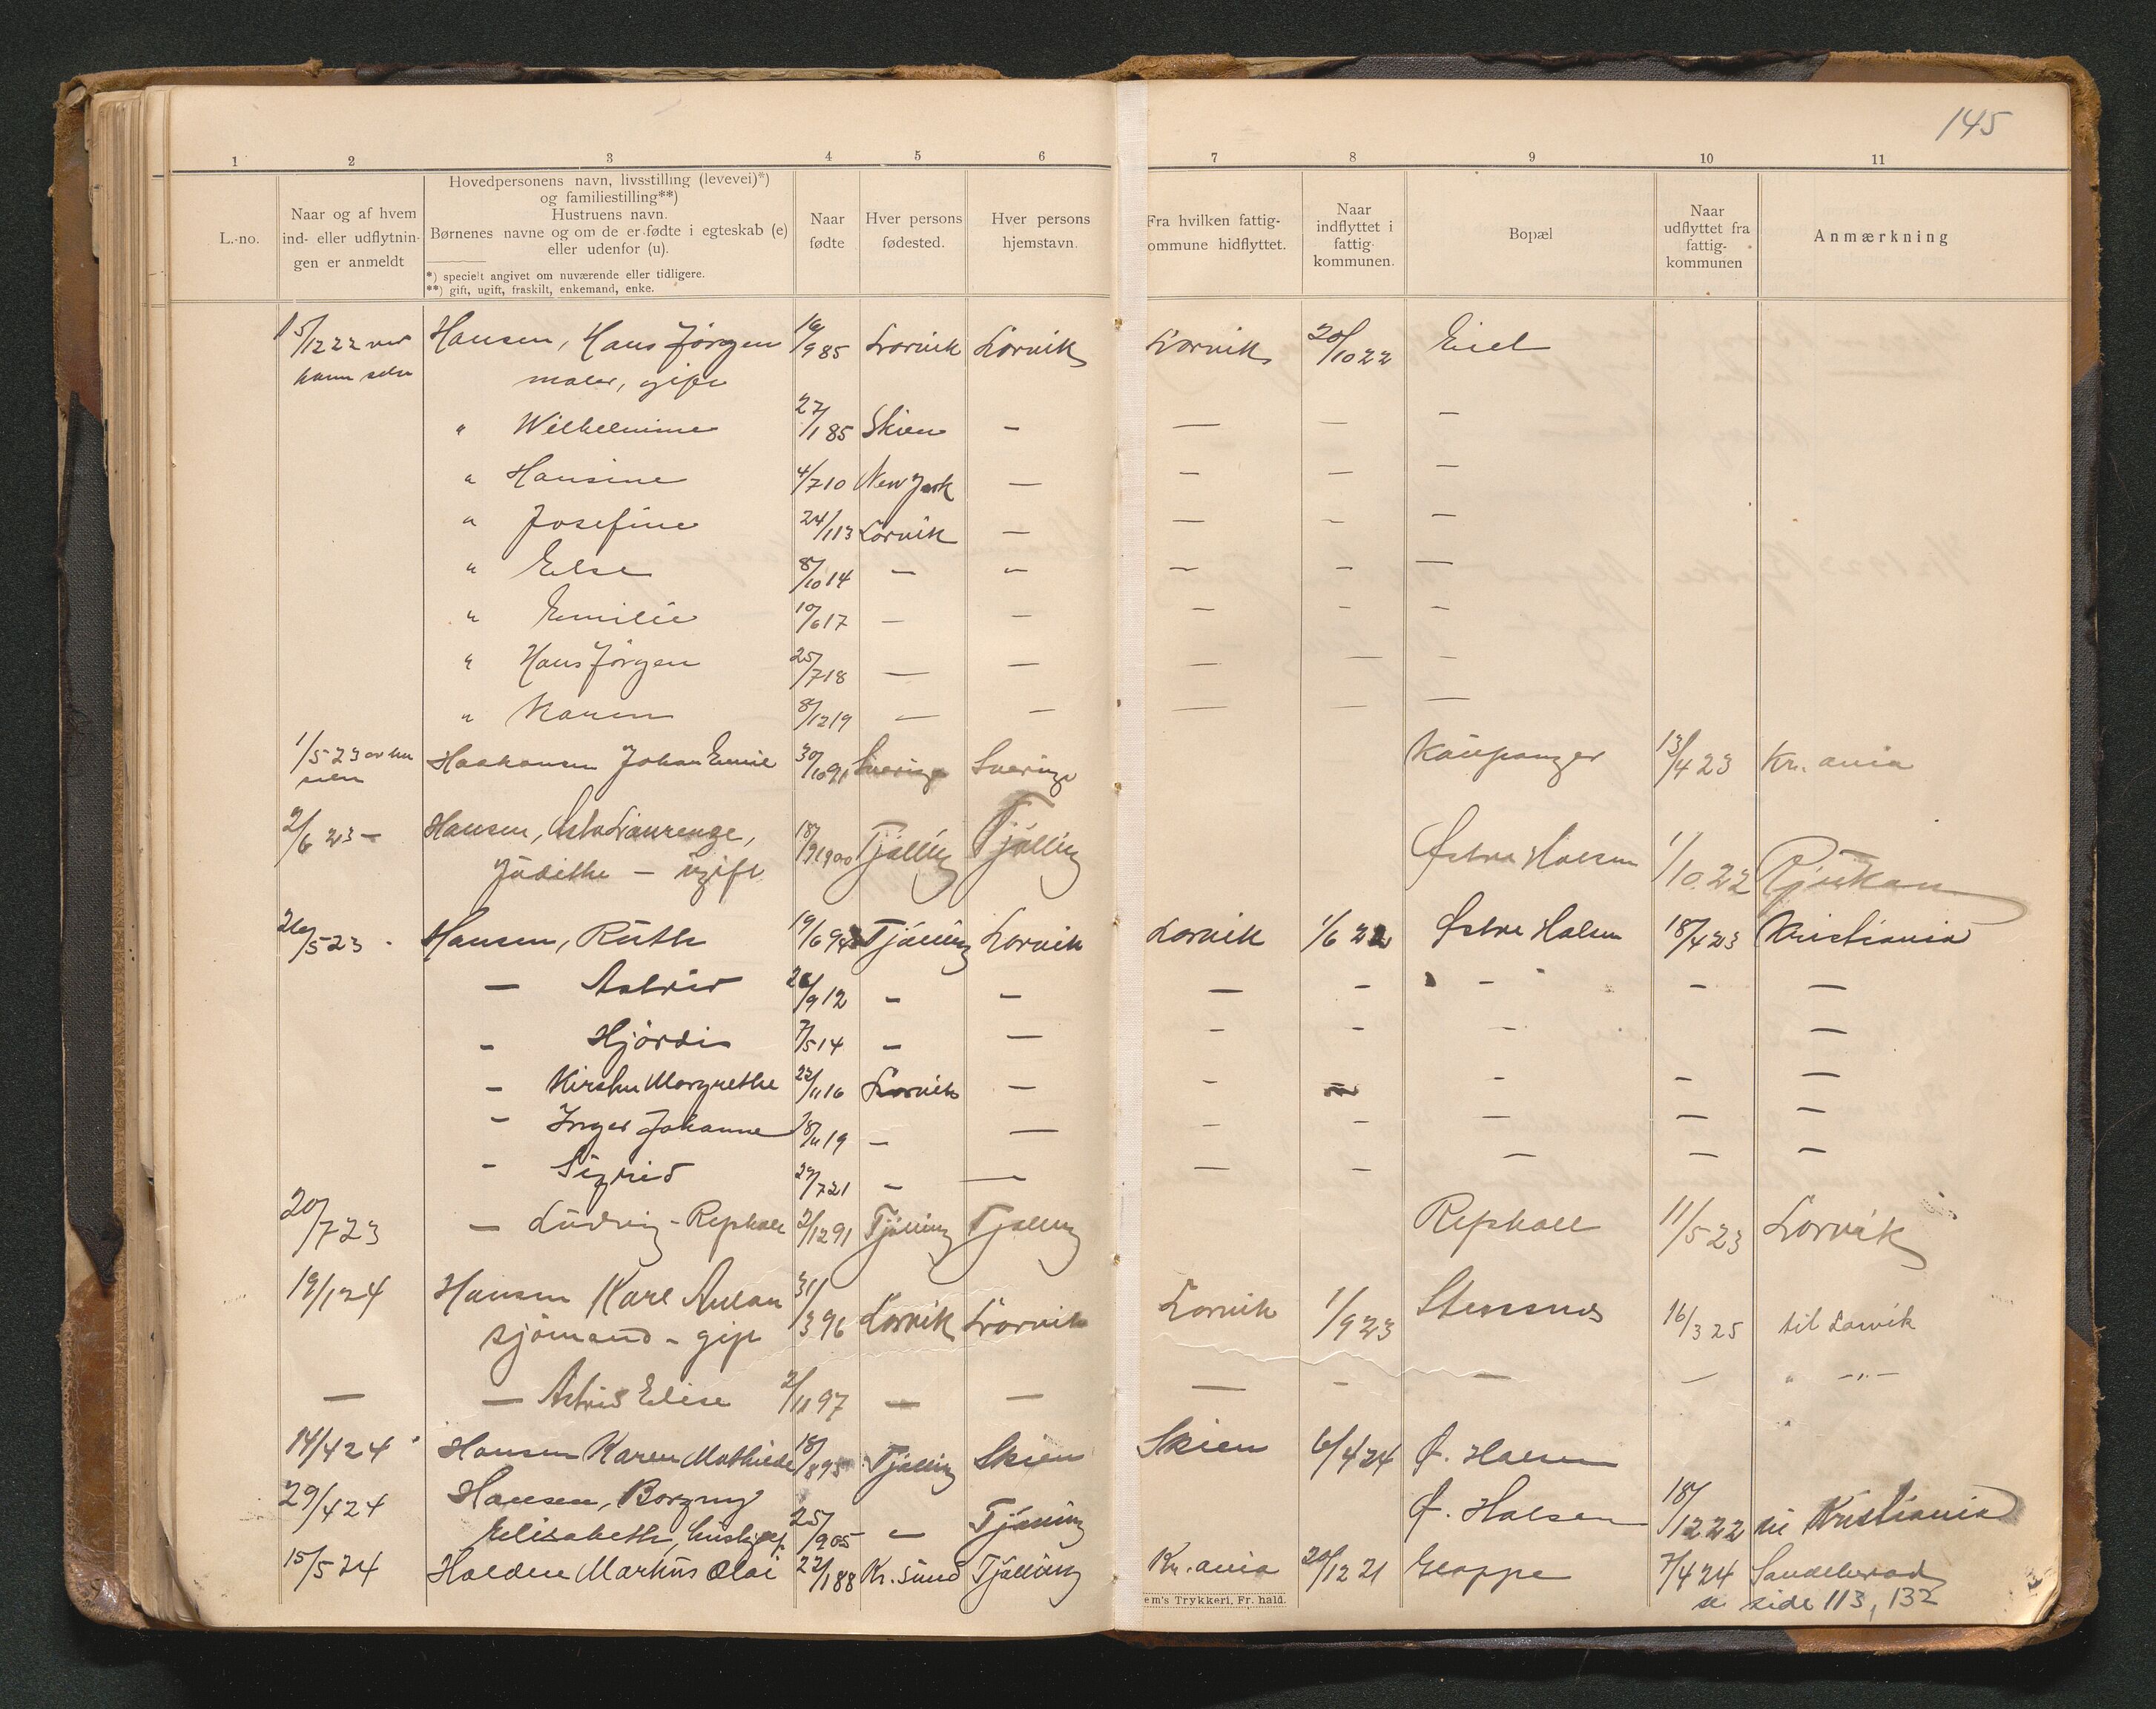 145
1 2 3 4 5 6 7 8 9 10 11
L.-no.
Naar og af hvem
ind- eller udflytnin-
gen er anmeldt
Hovedpersonens navn, livsstilling (levevei)*)
og familiestilling**)
Hustruens navn.
Børnenes navne og om de er fødte i egteskab (e)
eller udenfor (u).
*) specielt angivet om nuværende eller tidligere.
**) gift, ugift, fraskilt, enkemand, enke.
Naar
fødte
Hver persons
fødested.
Hver persons
hjemstavn.
Fra hvilken fattig-
ommune hidflyttet.
Naar
indflyttet i
fattig-
kommunen.
Bopæl
Naar
udflyttet fra
fattig-
kommunen
Anmærkning
15/12 22 ved Hansen, Hans Jörgen 16/9 85 Larvik Larvik Larvik 20/10 22 Eiel
ham selv maler, gift
" Wilhelmine 27/1 85 Skien — — — —
" Hansine 4/7 10 New York — — — —
" Josefine 24/1 13 Larvik — — — —
" Else 8/10 14 — — — — —
" Emilie 10/6 17 — — — — —
" Hans Jörgen 25/7 18 — — — — —
" Karen 8/12 19 — — — — —
1/5 23 Haakansen Johan Emil 30/10 91 Sverige Sverige Kaupanger 13/4 23 Kr.ania
2/6 23 — Hansen, Asta Laurenze, 18/9 1900 Tjölling Tjölling Østre Halsen 1/10 22 Rjukan
Judithe — ugift
26/5 23 - Hansen, Ruth 19/6 94 Tjölling Larvik Larvik 1/6 22 Østre Halsen 18/4 23 Kristiania
— Astrid 26/9 12 - — — - - - —
- Hjördis 7/5 14 - — - - - —
- Kirsten Margrethe 22/11 16 Larvik — - - - - —
- Inger Johanne 18/11 19 - — - - — — —
- Sigrid 29/7 21 - — — - — — —
20/7 23 — Ludvig - Rephall 2/12 91 Tjölling Tjölling Rephall 11/5 23 Larvik
19/1 24 Hansen Karl Anton 31/3 96 Larvik Larvik Larvik 1/9 23 Stensnes 16/3 25 til Larvik
sjömand - gift
— — Astrid Elise 2/11 97 — — — - — — " —"—
14/4 24 Hansen Karen Mathilde 18/8 95 Tjölling Skien Skien 6/4 24 Ø. Halsen
29/4 24 Hansen, Borgny
Elisabeth, 25/9 05 — Tjölling Ø. Halsen 18/12 22 til Kristiania
15/5 24 Halden Martius Olai 22/1 88 Kr.sund Tjölling Kr.ania 20/12 21 Gloppe 7/4 24 Sandeherad
se side 113, 132
em's Trykkeri, Fr. hald.